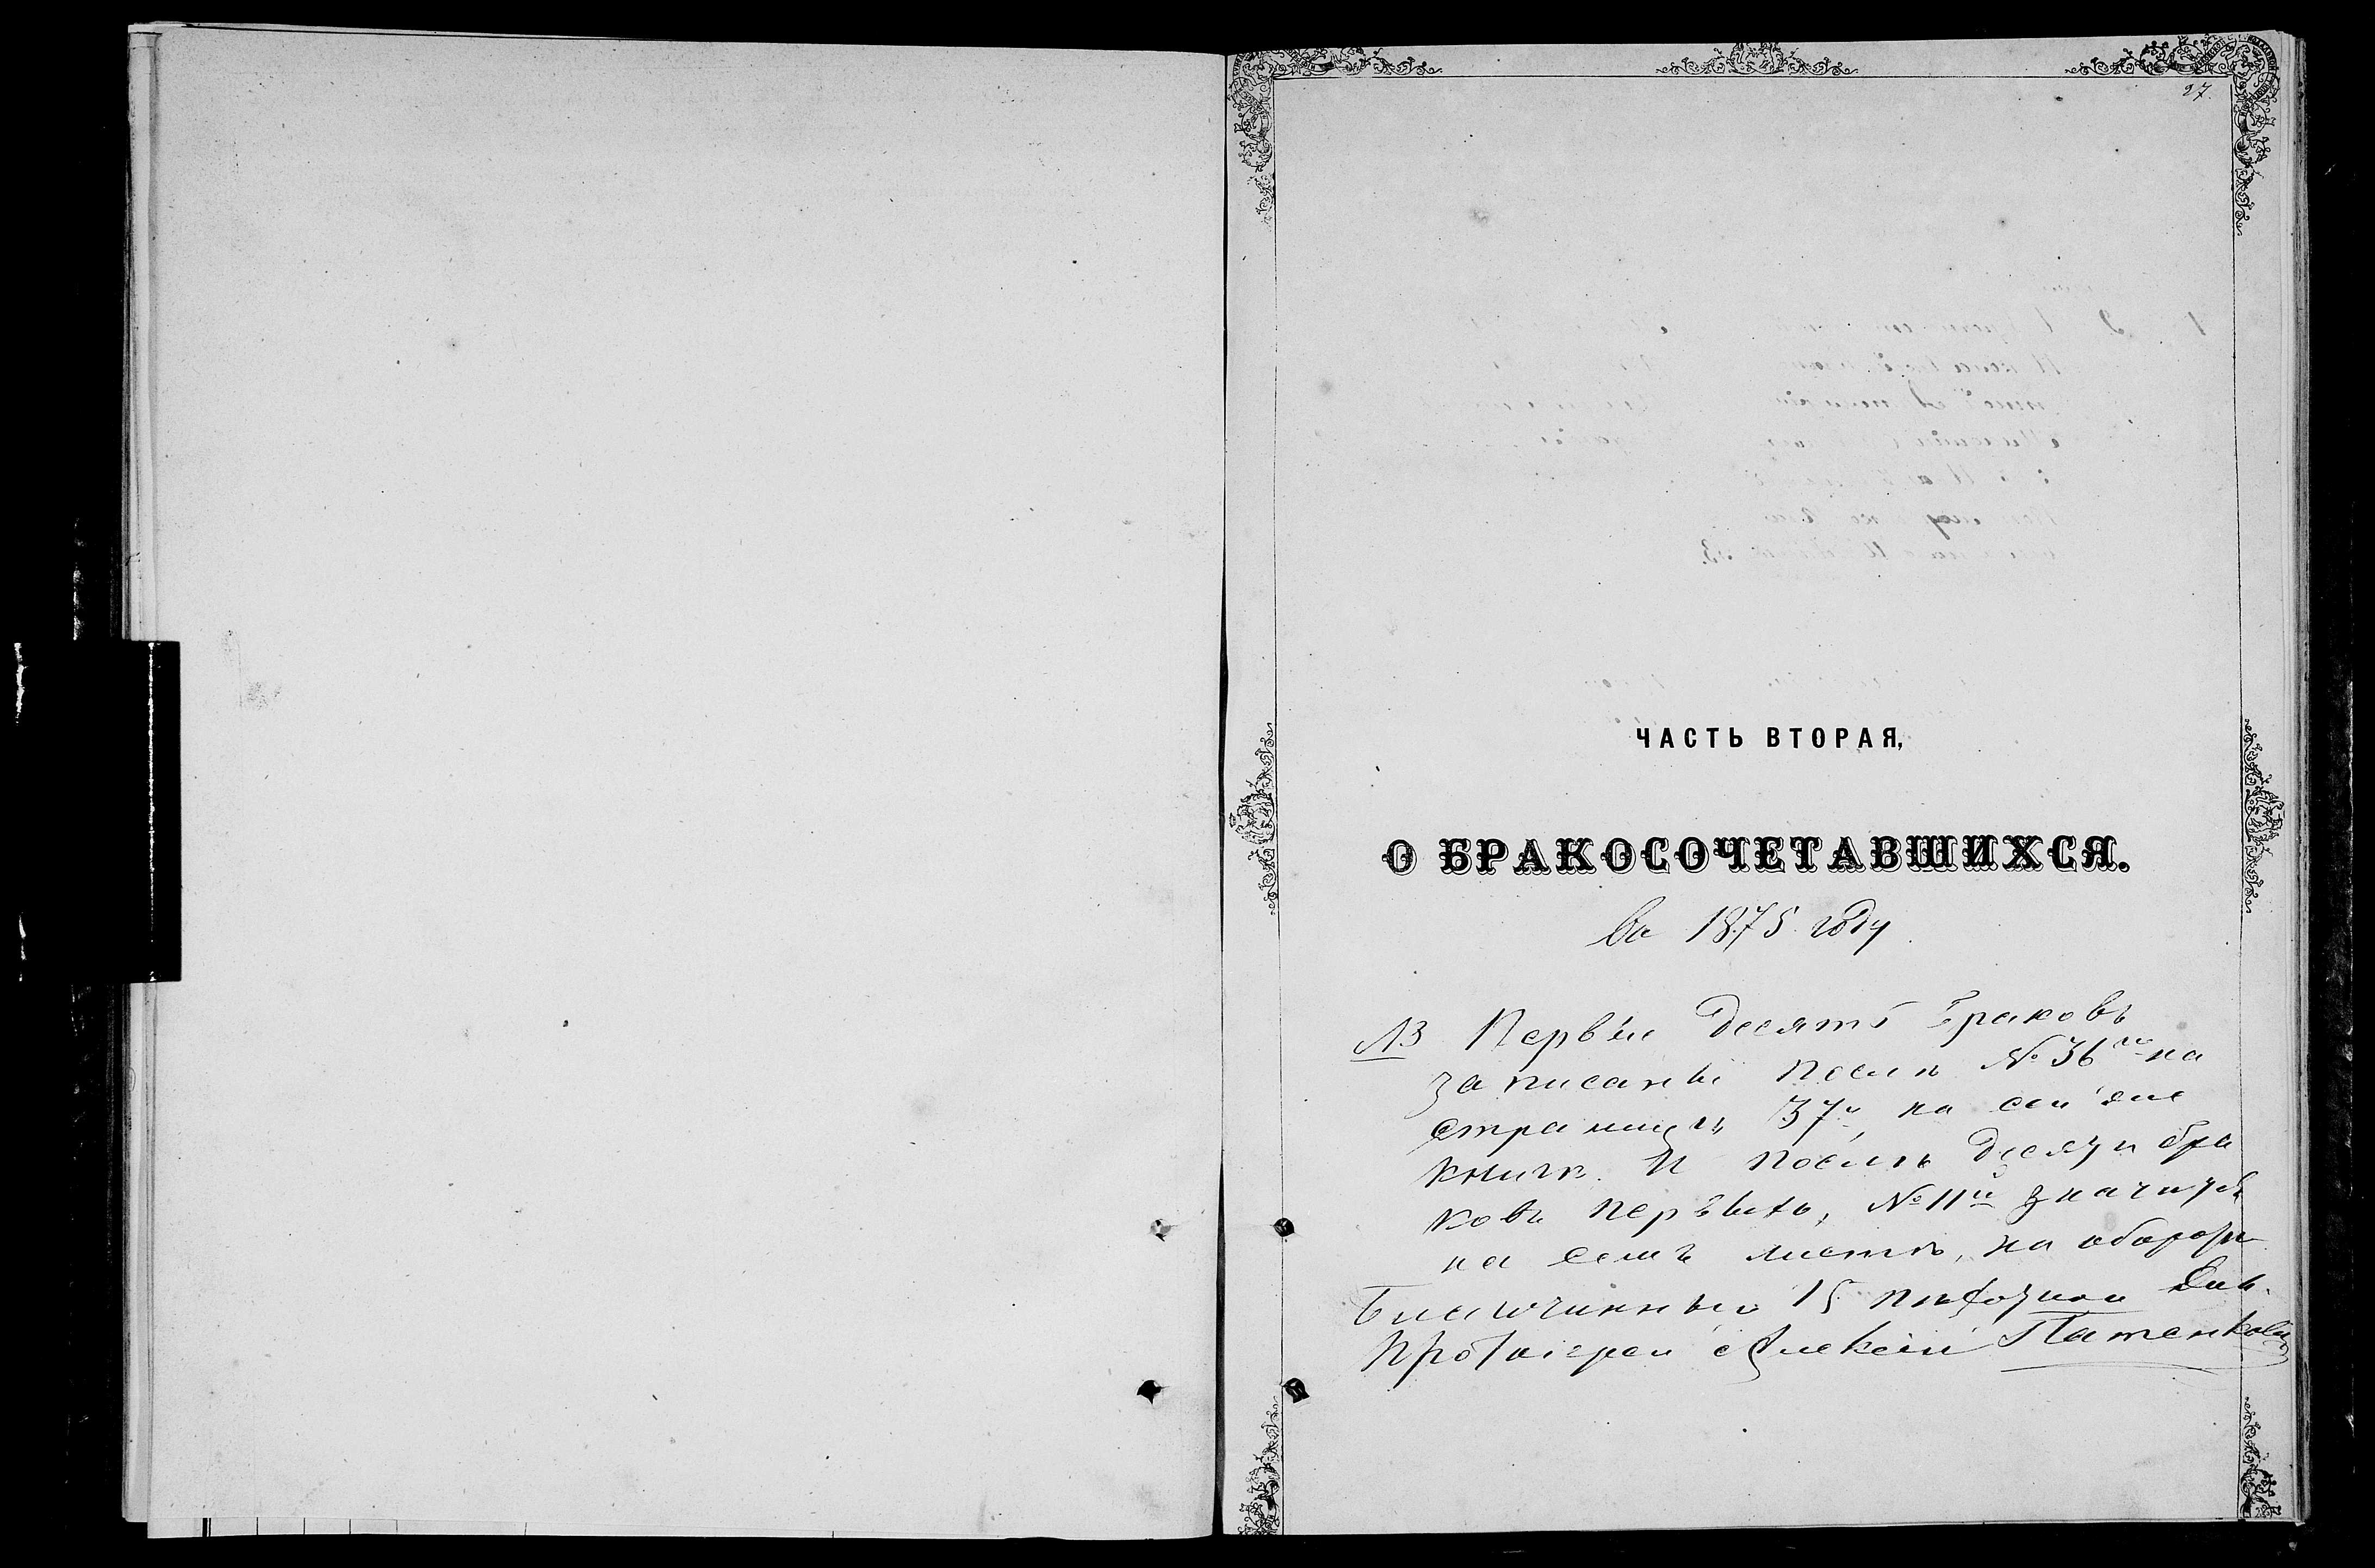 27.
ЧАСТЬ ВТОРАЯ,
О БРАКОСОЧЕТАВШИХСЯ.
Въ 1875 году
NB Первыи десять браковъ
записаны послѣ № 36го на
страницѣ 37й, на сей же
книгѣ. И послѣ десяти бра
ковъ первыхъ, № 11й значится
на семъ листѣ, на оборотѣ
Благочинный 15
Протоіерей Алексій